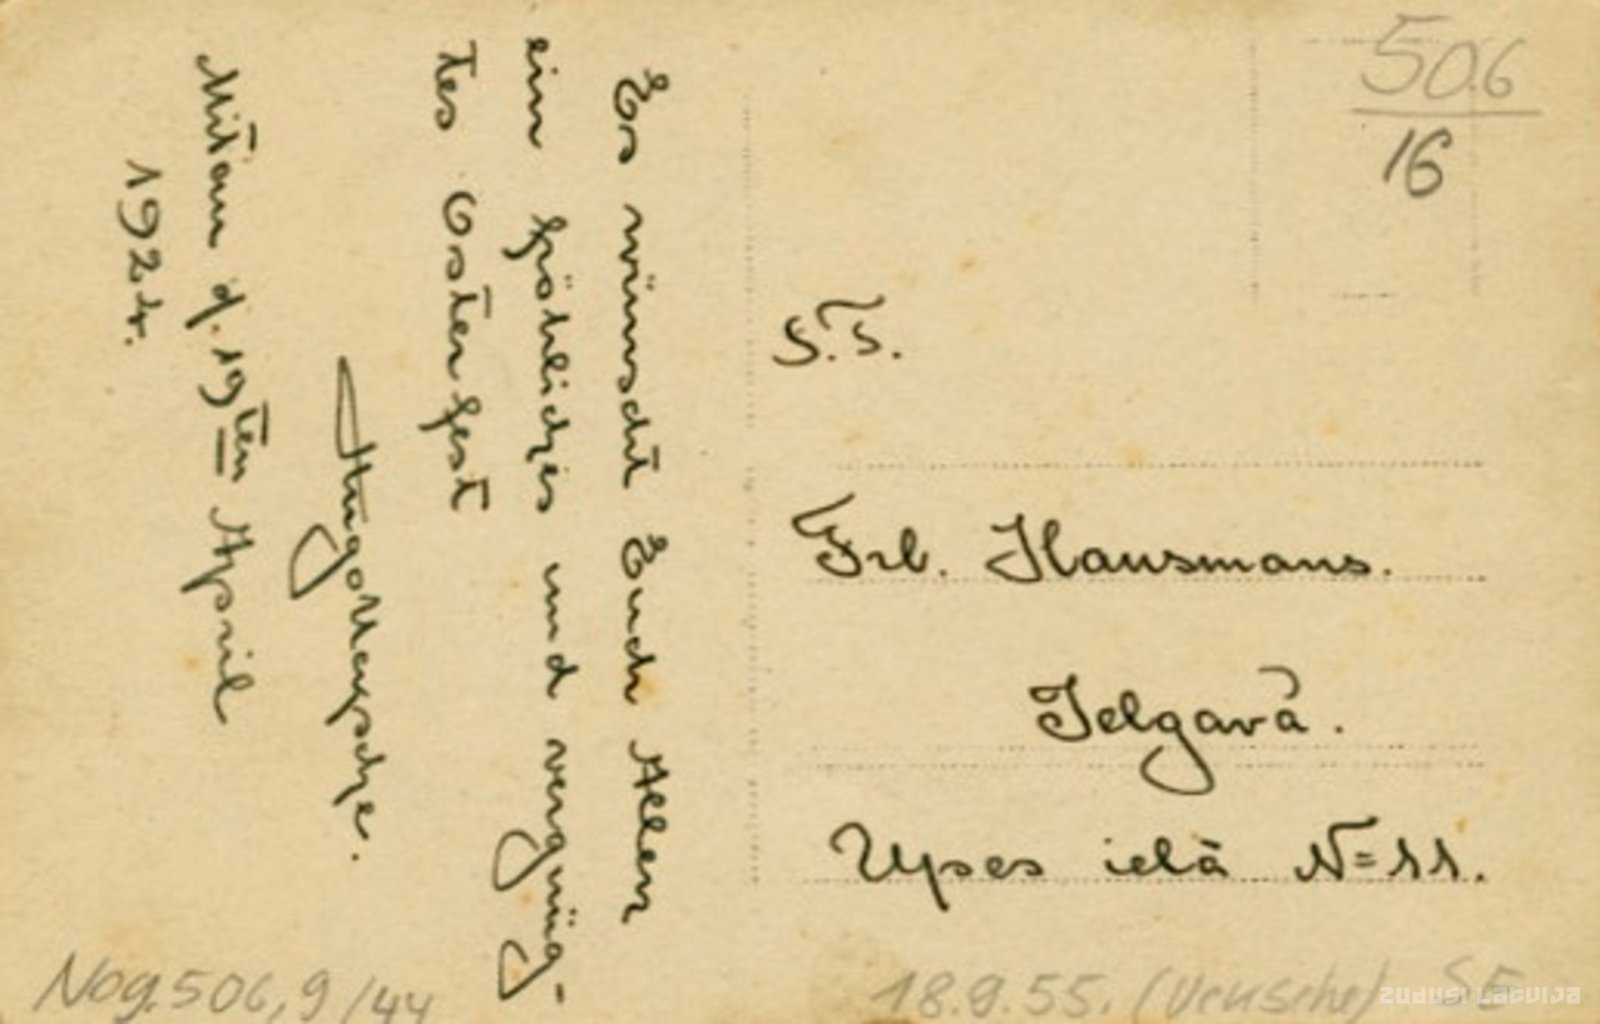 Es wünscht Euch Allen
ein fröhliches und vergnüg-
tes Osterfest
Hugo
Mitau d. 19ten April
1924.
Frl. Hausmans.
Jelgavā.
Upes ielā N=11.
506
16
Nog. 506,9/44
18.9.55.
ZUDUSI LATVIJA